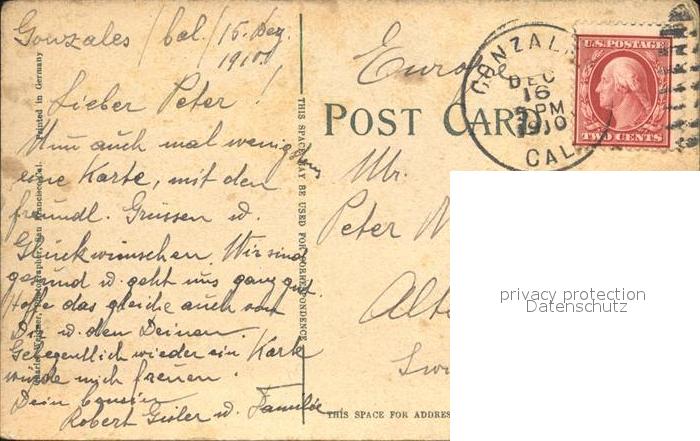 Gonzales / Cal. / 15. Dez.
1910.
Lieber Peter !
Nun auch mal wenigstens
eine Karte, mit den
freundl. Grüssen u.
Glückwünschen. Wir sind
gesund u. geht uns ganz gut
hoffe das gleiche auch von
Dir u. den Deinen.
Gelegentlich wieder ein Karte
würde mich freuen.
Dein Cousin
Robert Gisler u. Familie
Printed in Germany
Photographer, San Francisco, Cal.
THIS SPACE MAY BE USED FOR CORRESPONDENCE
Europe
POST CARD
GONZALES
DEC
16
PM
1910
CAL.
U.S. POSTAGE
TWO CENTS
Mr.
Peter
THIS SPACE FOR ADDRES
privacy protection
Datenschutz